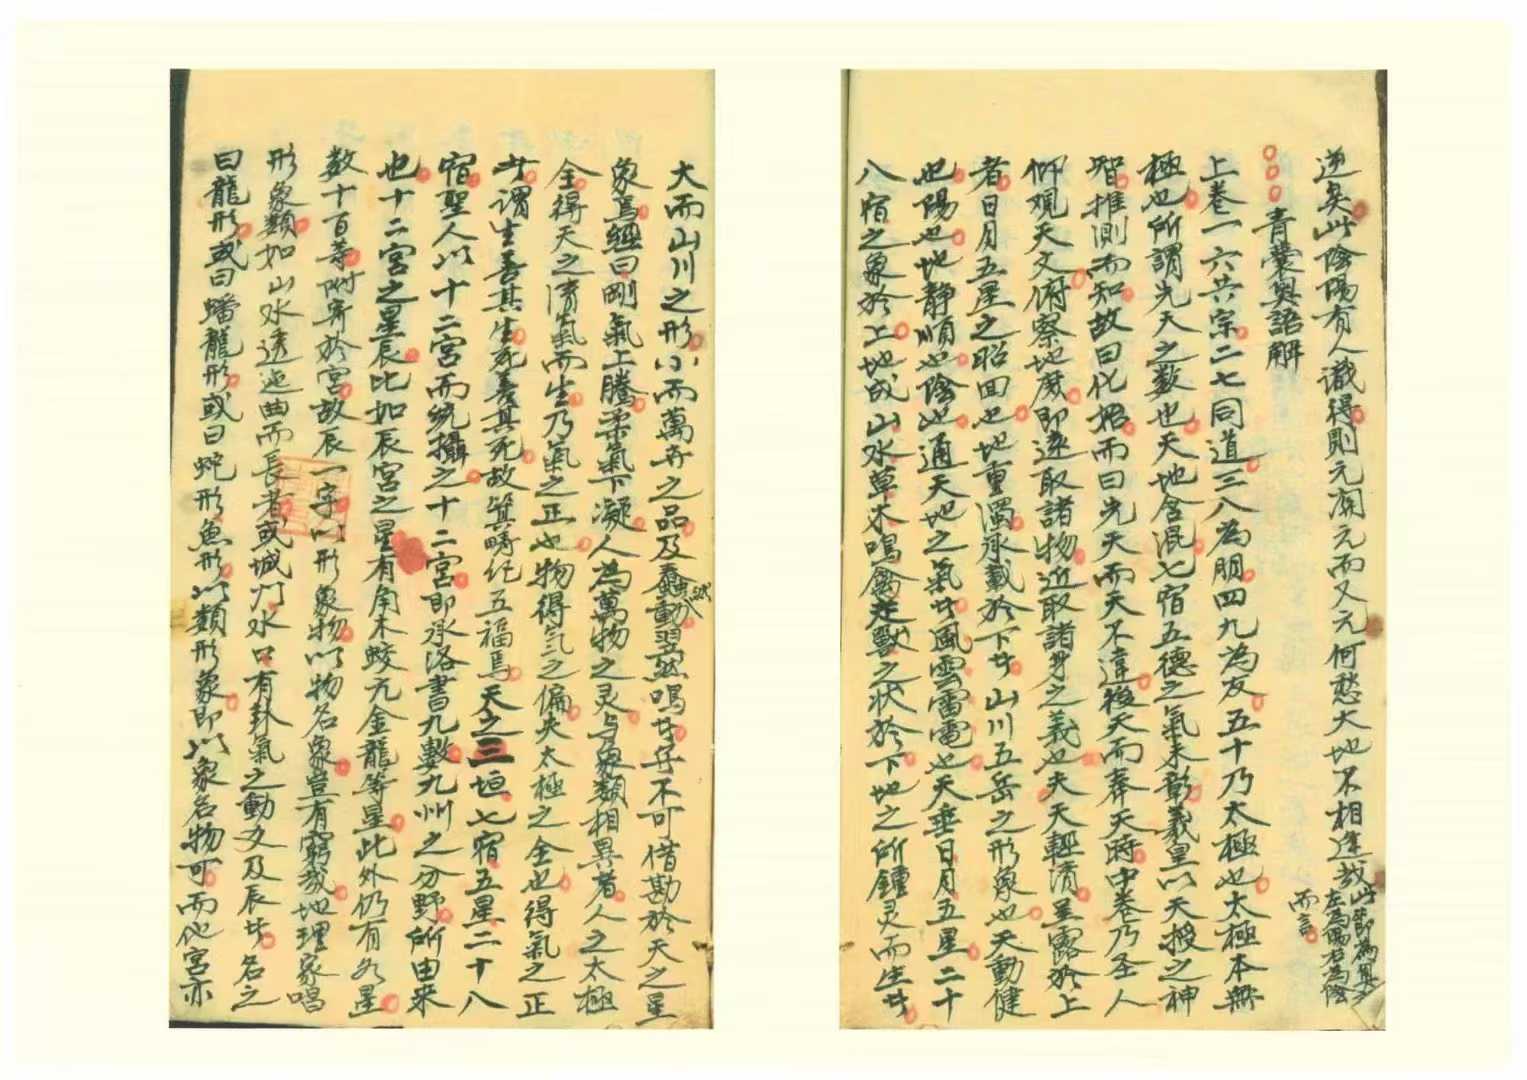 逆矣此陰陽有人識得則元關元而又元何愁大地不相逢哉此節為真夕
左為陽右為陰
而言
青囊奧語解
上卷一六共宗二七同道三八為朋四九為友五十乃太極也太極本無
極也所謂先天之數也天地含混七宿五德之氣未彰羲皇以天授之神
智推測而知故曰化招而曰先天而天不違後天而奉天時中卷乃圣人
仰觀天文俯察地度即遠取諸物近取諸身之義也夫天輕清呈露於上
者日月五星之昭回也地重濁承載於下廾山川五岳之形象也天動健
也陽也地靜順也陰也通天地之氣廾風雲雷電也天垂日月五星二十
八宿之象於上地成山水草木鳴禽走獸之状於下地之所鍾灵而生廾
大而山川之形小而萬卉之品及蠢動翌然鳴廾弁不可借勘於天之星
象焉經曰剛氣上騰柔氣下凝人為萬物之灵与象類相異者人之太極
全得天之清氣而生乃氣之正也物得氣之偏夹太極之全也得氣之正
廾謂生善其生死善其死故箕疇纪五福焉天之三垣七宿五星二十八
宿聖人以十二宮而統攝之十二宮即承洛書九數九州之分野所由来
也十二宮之星辰比如辰宮之星有角木蛟亢金龍等星此外仍有各星
数十百等附寄於宮故辰一字以形象物以物名象豈有窮哉地理家唱
形象類如山水透迤曲而長者或城门水口有卦氣之動爻及辰廾名之
曰龍形或曰蟠龍形或曰蛇形魚形以類形象即以象名物可而他宮亦